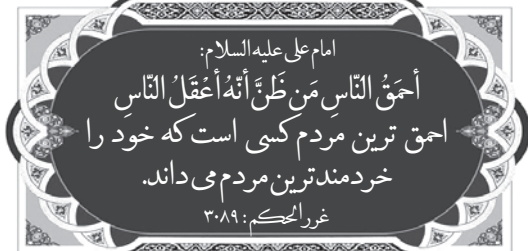 امام علی علیه السلام:
أحمَقُ النّاسِ مَن ظَنَّ أنّهُ أعْقَلُ النّاسِ
احمق ترین مردم کسی است که خود را
خردمندترین مردم می داند.
غررالحکم: ۳۰۸۹